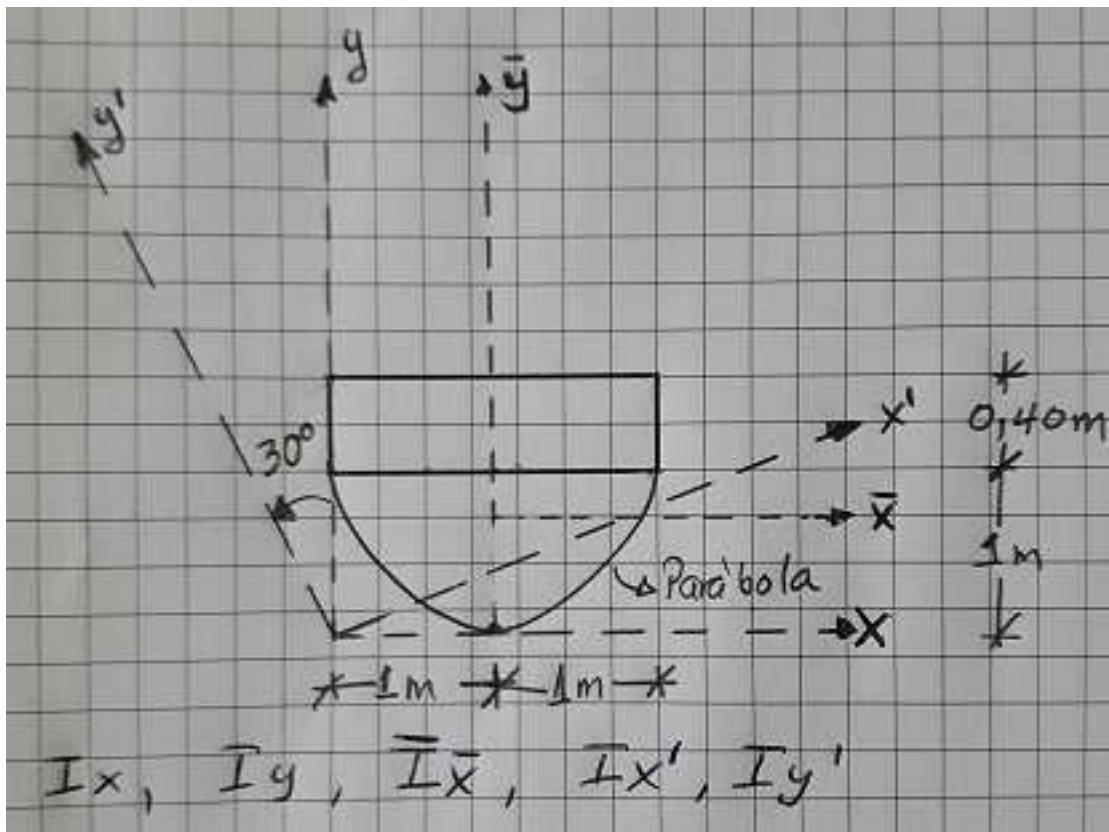 y
ȳ
y'
30°
x'
0,40m
x̄
1m
Parábola
X
1m
1m
Ix, Iy, Īx̄, Ix', Iy'